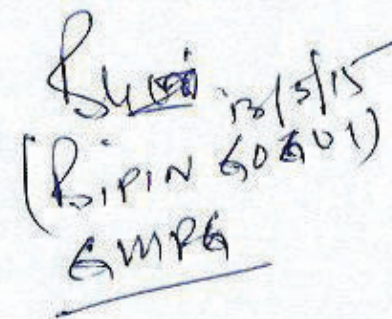 13/5/15
(BIPIN GOGOI)
GMPG